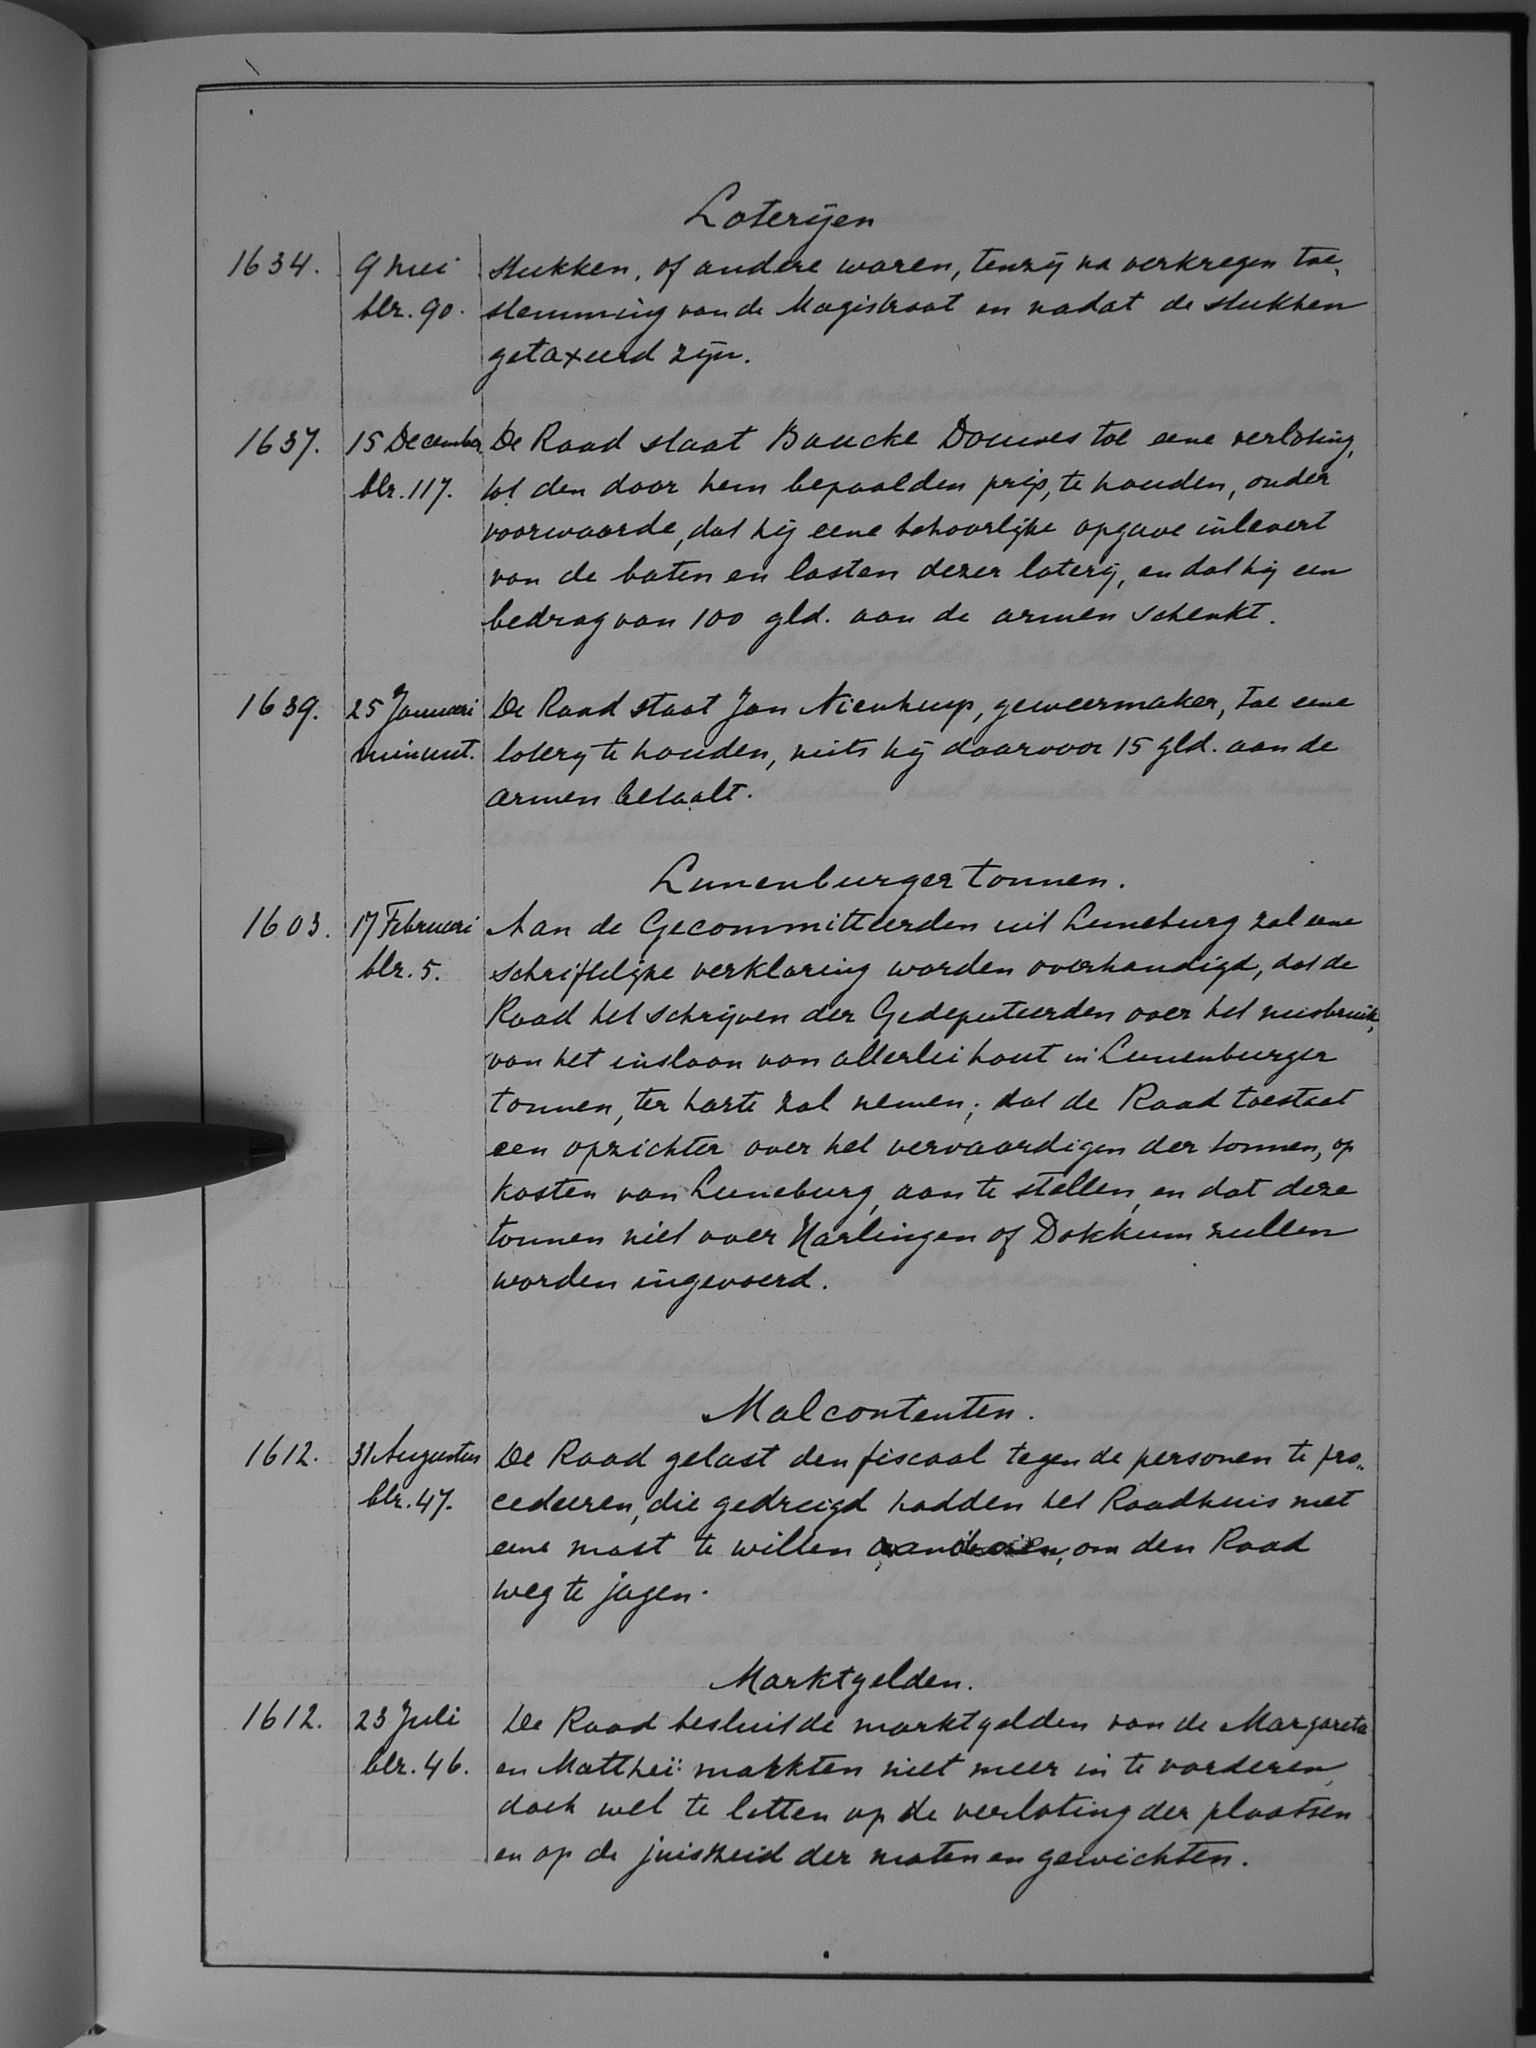 Loterijen
1634. 9 Mei stukken, of andere waren, tenzij na verkregen toe-
blz. 90. stemming van de Magistraat en nadat de stukken
getaxeerd zijn.
1637. 15 December De Raad staat Baucke Douwes toe eene verloting,
blz. 117. tot den door hem bepaalden prijs, te houden, onder
voorwaarde, dat hij eene behoorlijke opgave inlevert
van de baten en lasten dezer loterij, en dat hij een
bedrag van 100 gld. aan de armen schenkt.
1639. 25 Januari De Raad staat Jan Nienhuys, geweermaker, toe eene
minuut. loterij te houden, mits hij daarvoor 15 gld. aan de
armen betaalt.
Lunenburger tonnen.
1603. 17 Februari Aan de Gecommitteerden uit Luneburg zal eene
blz. 5. schriftelijke verklaring worden overhandigd, dat de
Raad het schrijven der Gedeputeerden over het misbruik,
van het inslaan van allerlei hout in Lunenburger
tonnen, ter harte zal nemen; dat de Raad toestaat
een opzichter over het vervaardigen der tonnen, op
kosten van Luneburg, aan te stellen, en dat deze
tonnen niet over Harlingen of Dokkum zullen
worden ingevoerd.
Malcontenten.
1612. 31 Augustus De Raad gelast den fiscaal tegen de personen te pro-
blz. 47. cedeeren, die gedreigd hadden het Raadhuis met
eene mast te willen om den Raad
weg te jagen.
Marktgelden.
1612. 23 Juli De Raad besluit de marktgelden van de Margareta
blz. 46. en Matthei: markten niet meer in te vorderen,
doch wel te letten op de verloting der plaatsen
en op de juistheid der maten en gewichten.